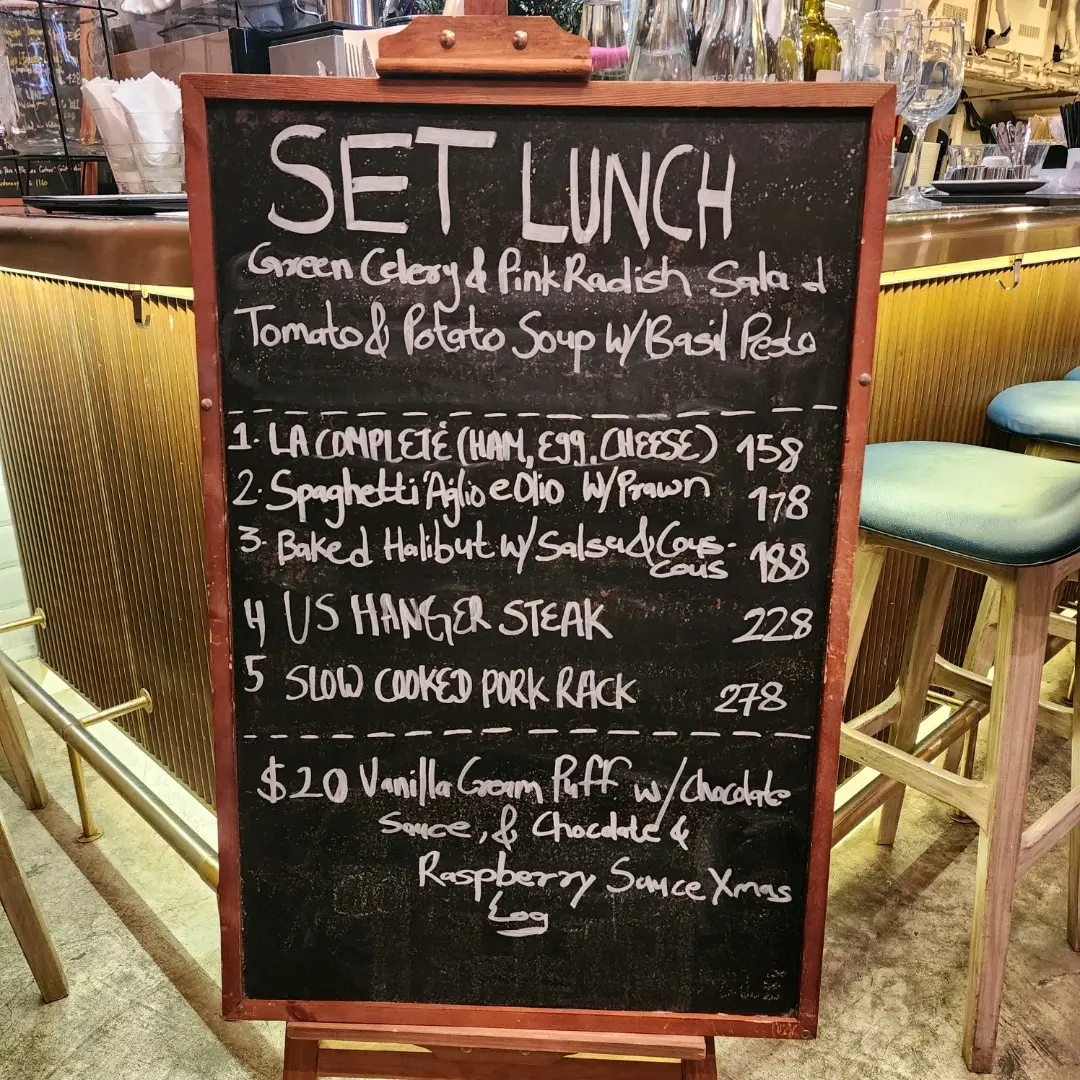 SET LUNCH
Green Celery & Pink Radish Salad
Tomato & Potato Soup W/Basil Pesto
1. LA COMPLETÉ (HAM, Egg, CHEESE) 158
2. Spaghetti Aglio e Olio W/Prawn 178
3. Baked Halibut w/Salsa & Cous-
cous 188
4 US HANGER STEAK 228
5 SLOW COOKED PORK RACK 278
$20 Vanilla Cream Puff w/Chocolate
Sauce, & Chocolate &
Raspberry Sauce Xmas
Log